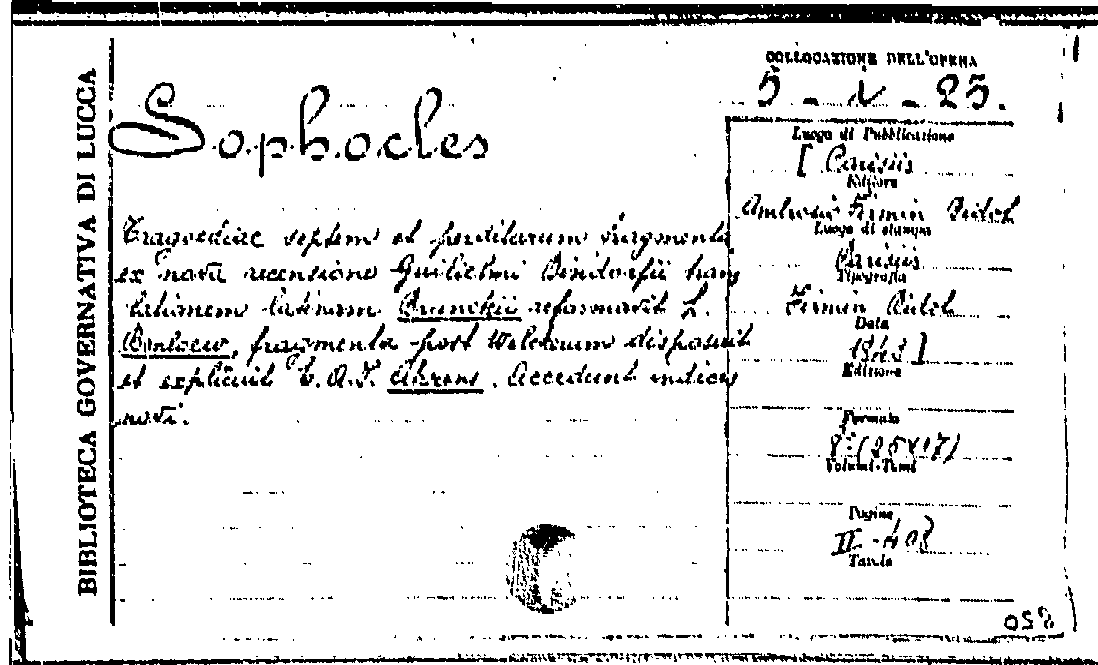 BIBLIOTECA GOVERNATIVA DI LUCCA
COLLOCAZIONE DELL'OPERA
5 - i - 25.
Sophocles
Tragoediae septem et perditarum fragmenta
ex nova recensione Guilielmi Dindorfii trans
lationem latinam Brunckii reformavit L.
Benloew, fragmenta post Welckerum disposuit
et explicuit E. A. I. Ahrens. Accedunt indices
novi.
Luogo di Pubblicazione
[ Parisiis
Editore
Ambrosio Firmin Didot
Luogo di stampa
Parisiis
Tipografia
Firmin Didot
Data
1843 ]
Edizione
Formato
8° (25x17)
Volumi-Tomi
Pagine
II-408
Tavole